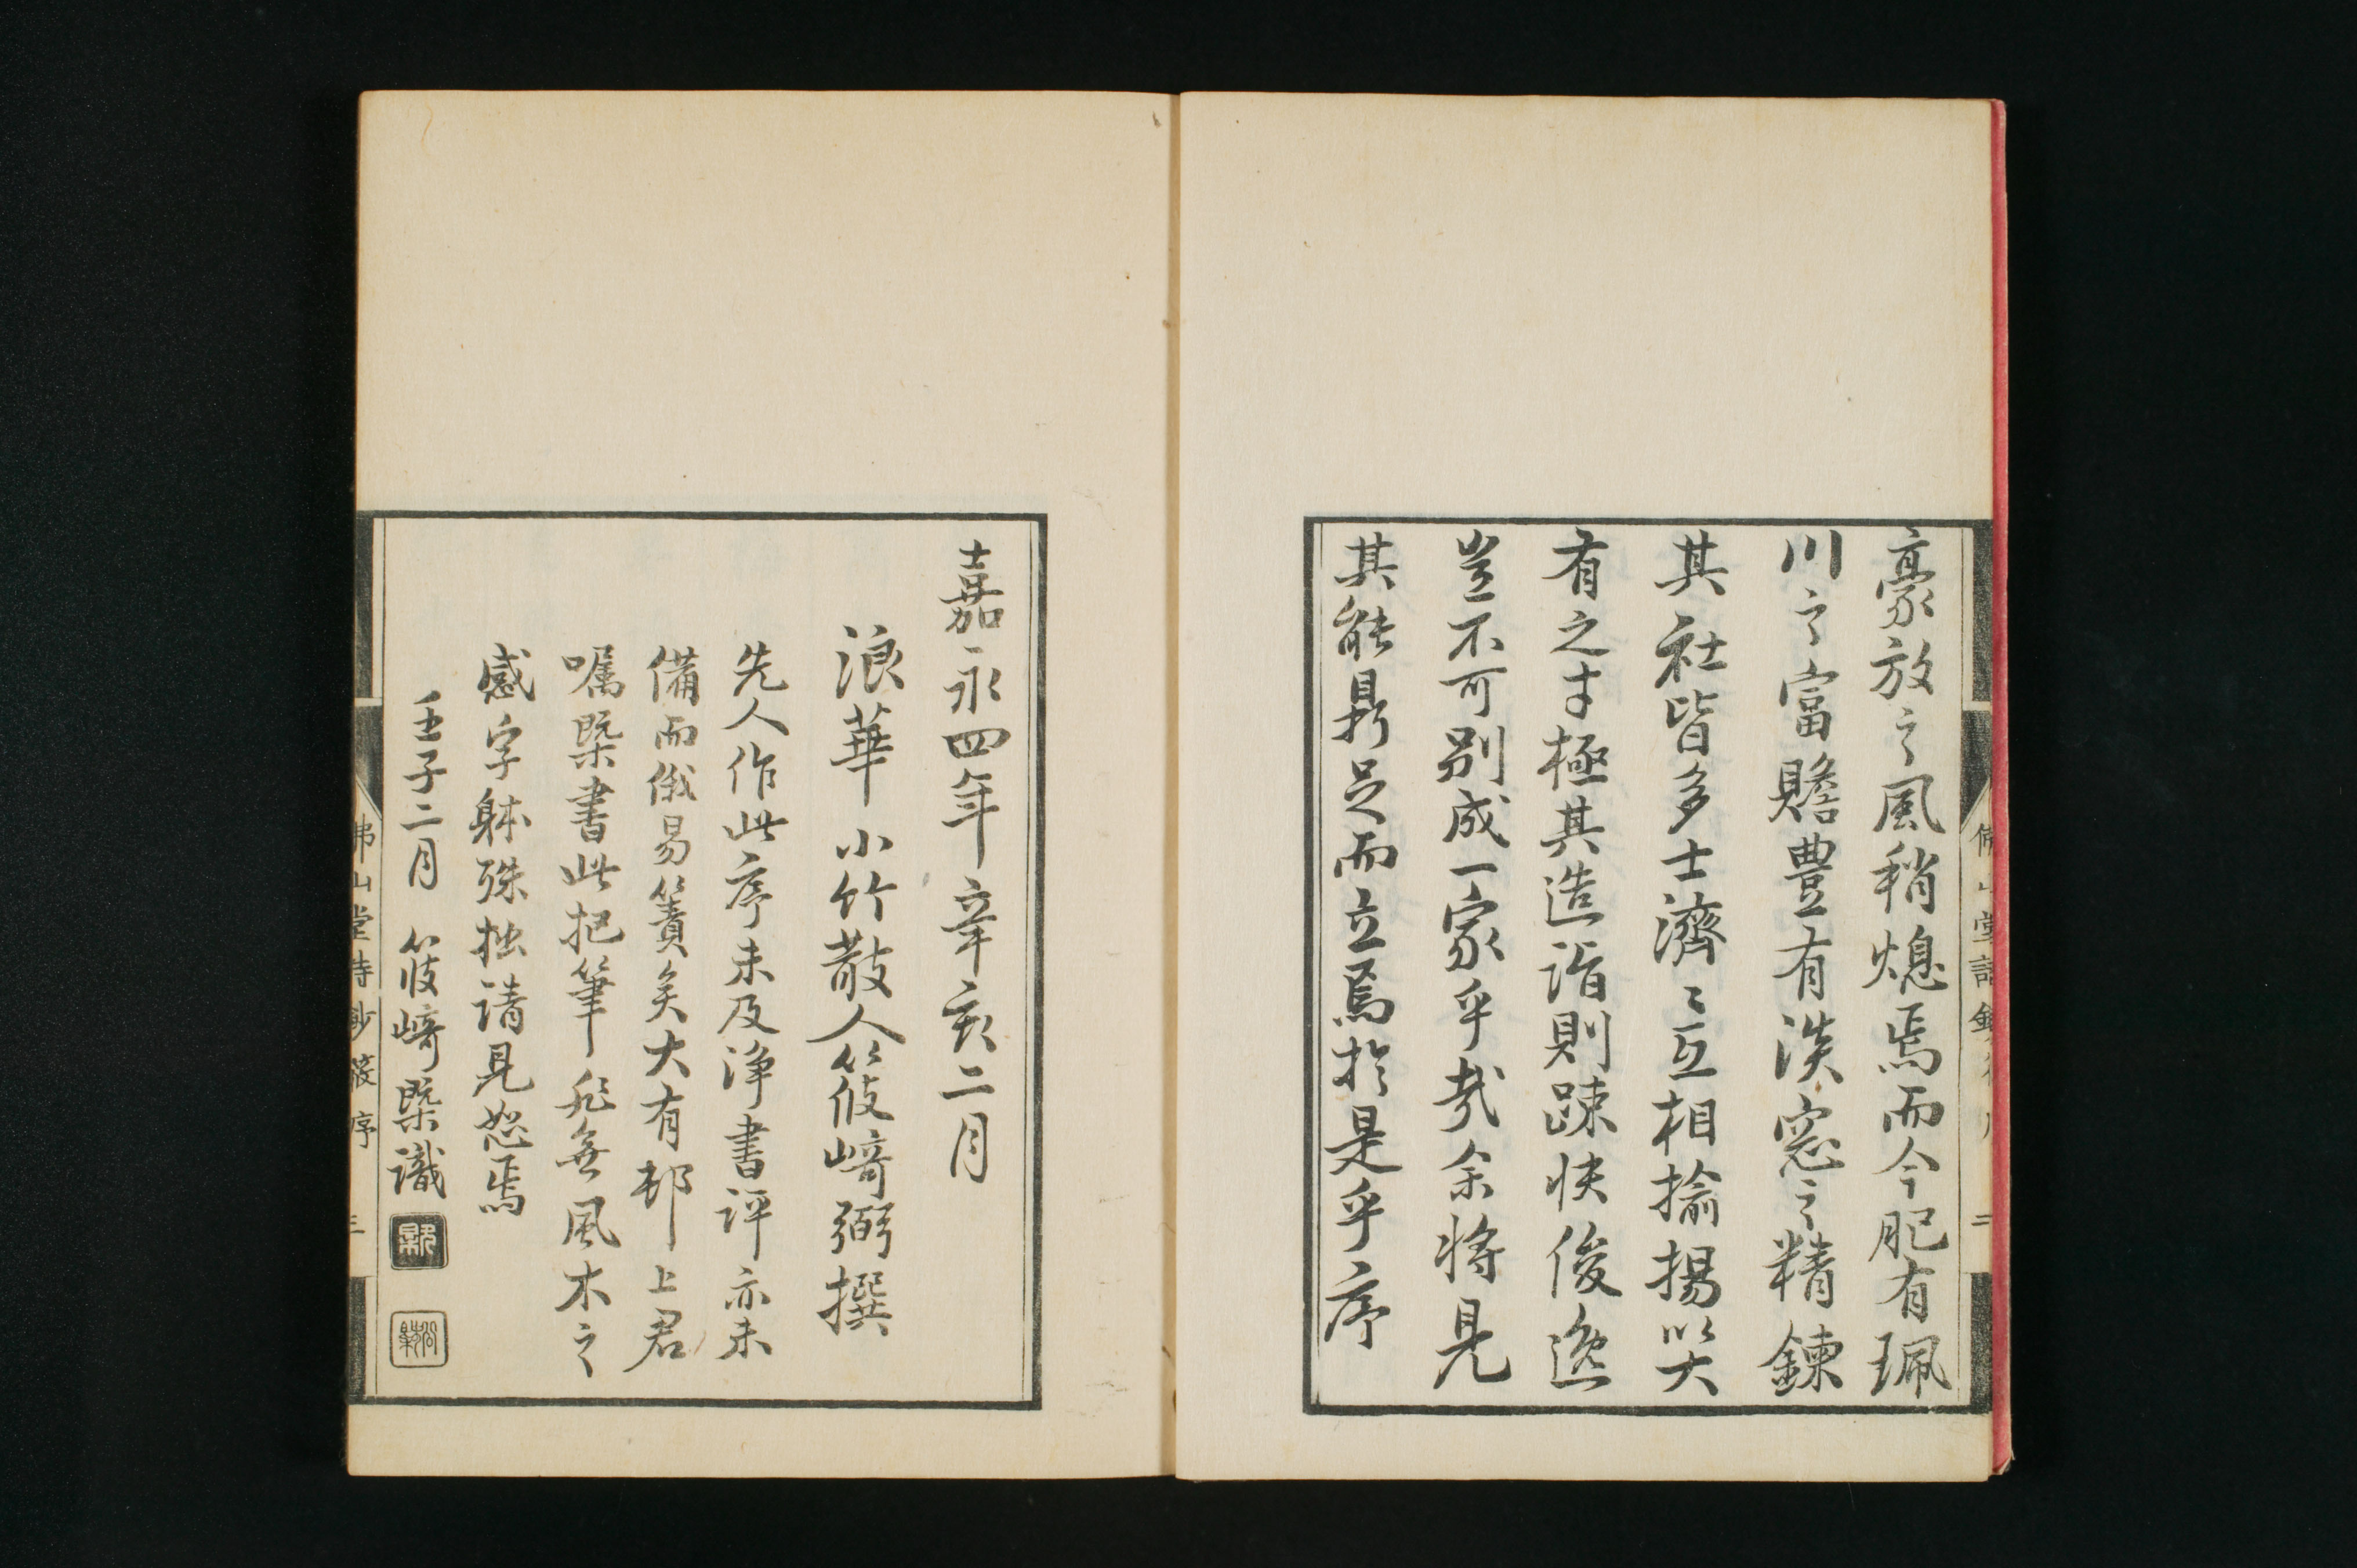 豪放之風稍熄焉而今肥有珮
川之富贍豊有淡窓之精錬
其社皆多士濟〻互相揄揚以大
有之才極其造詣則踈快俊逸
豈不可別成一家乎哉余将見
其能鼎足而立焉於是乎序
嘉永四年辛亥二月
浪華 小竹散人筱﨑弼撰
先人作此序未及浄書評亦未
備而俄易簀矣大有邨上君
嘱槩書此把筆愁無風木之
感字躰殊拙請見恕焉
壬子二月 筱﨑槩識
佛山堂詩鈔筱序 二
佛山堂詩鈔筱序 三